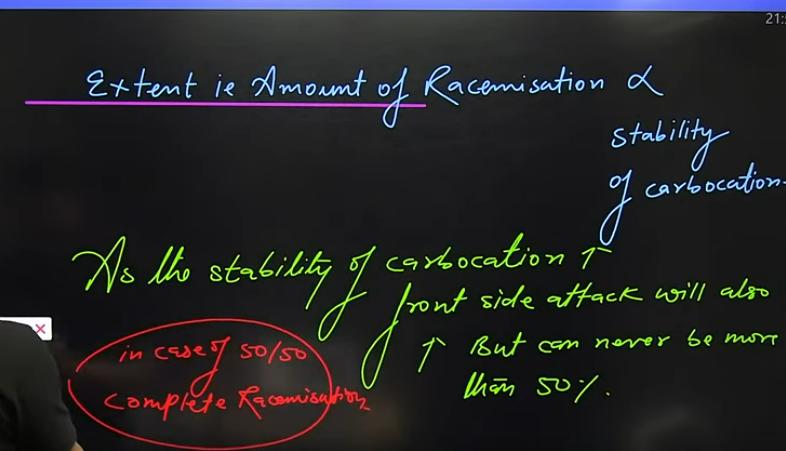 21:
Extent ie Amount of Racemisation ∝
stability
of carbocation
As the stability of carbocation ↑
front side attack will also
↑ But can never be more
than 50%.
in case of 50/50
complete Racemisation